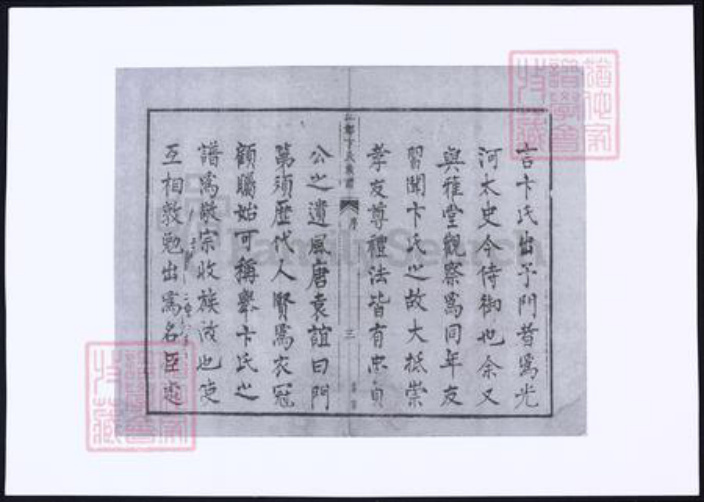 言卞氏出予門者爲光
河太史今侍御也余又
與雅堂觀察爲同年友
習聞卞氏之故大抵崇
孝友尊禮法皆有忠貞
江都卞氏族譜
序
三
公之遺風唐袁誼曰門
第須歷代人賢爲衣冠
顧矚始可稱舉卞氏之
譜爲敬宗收族故也使
互相敦勉出爲名臣處
FamilySearch